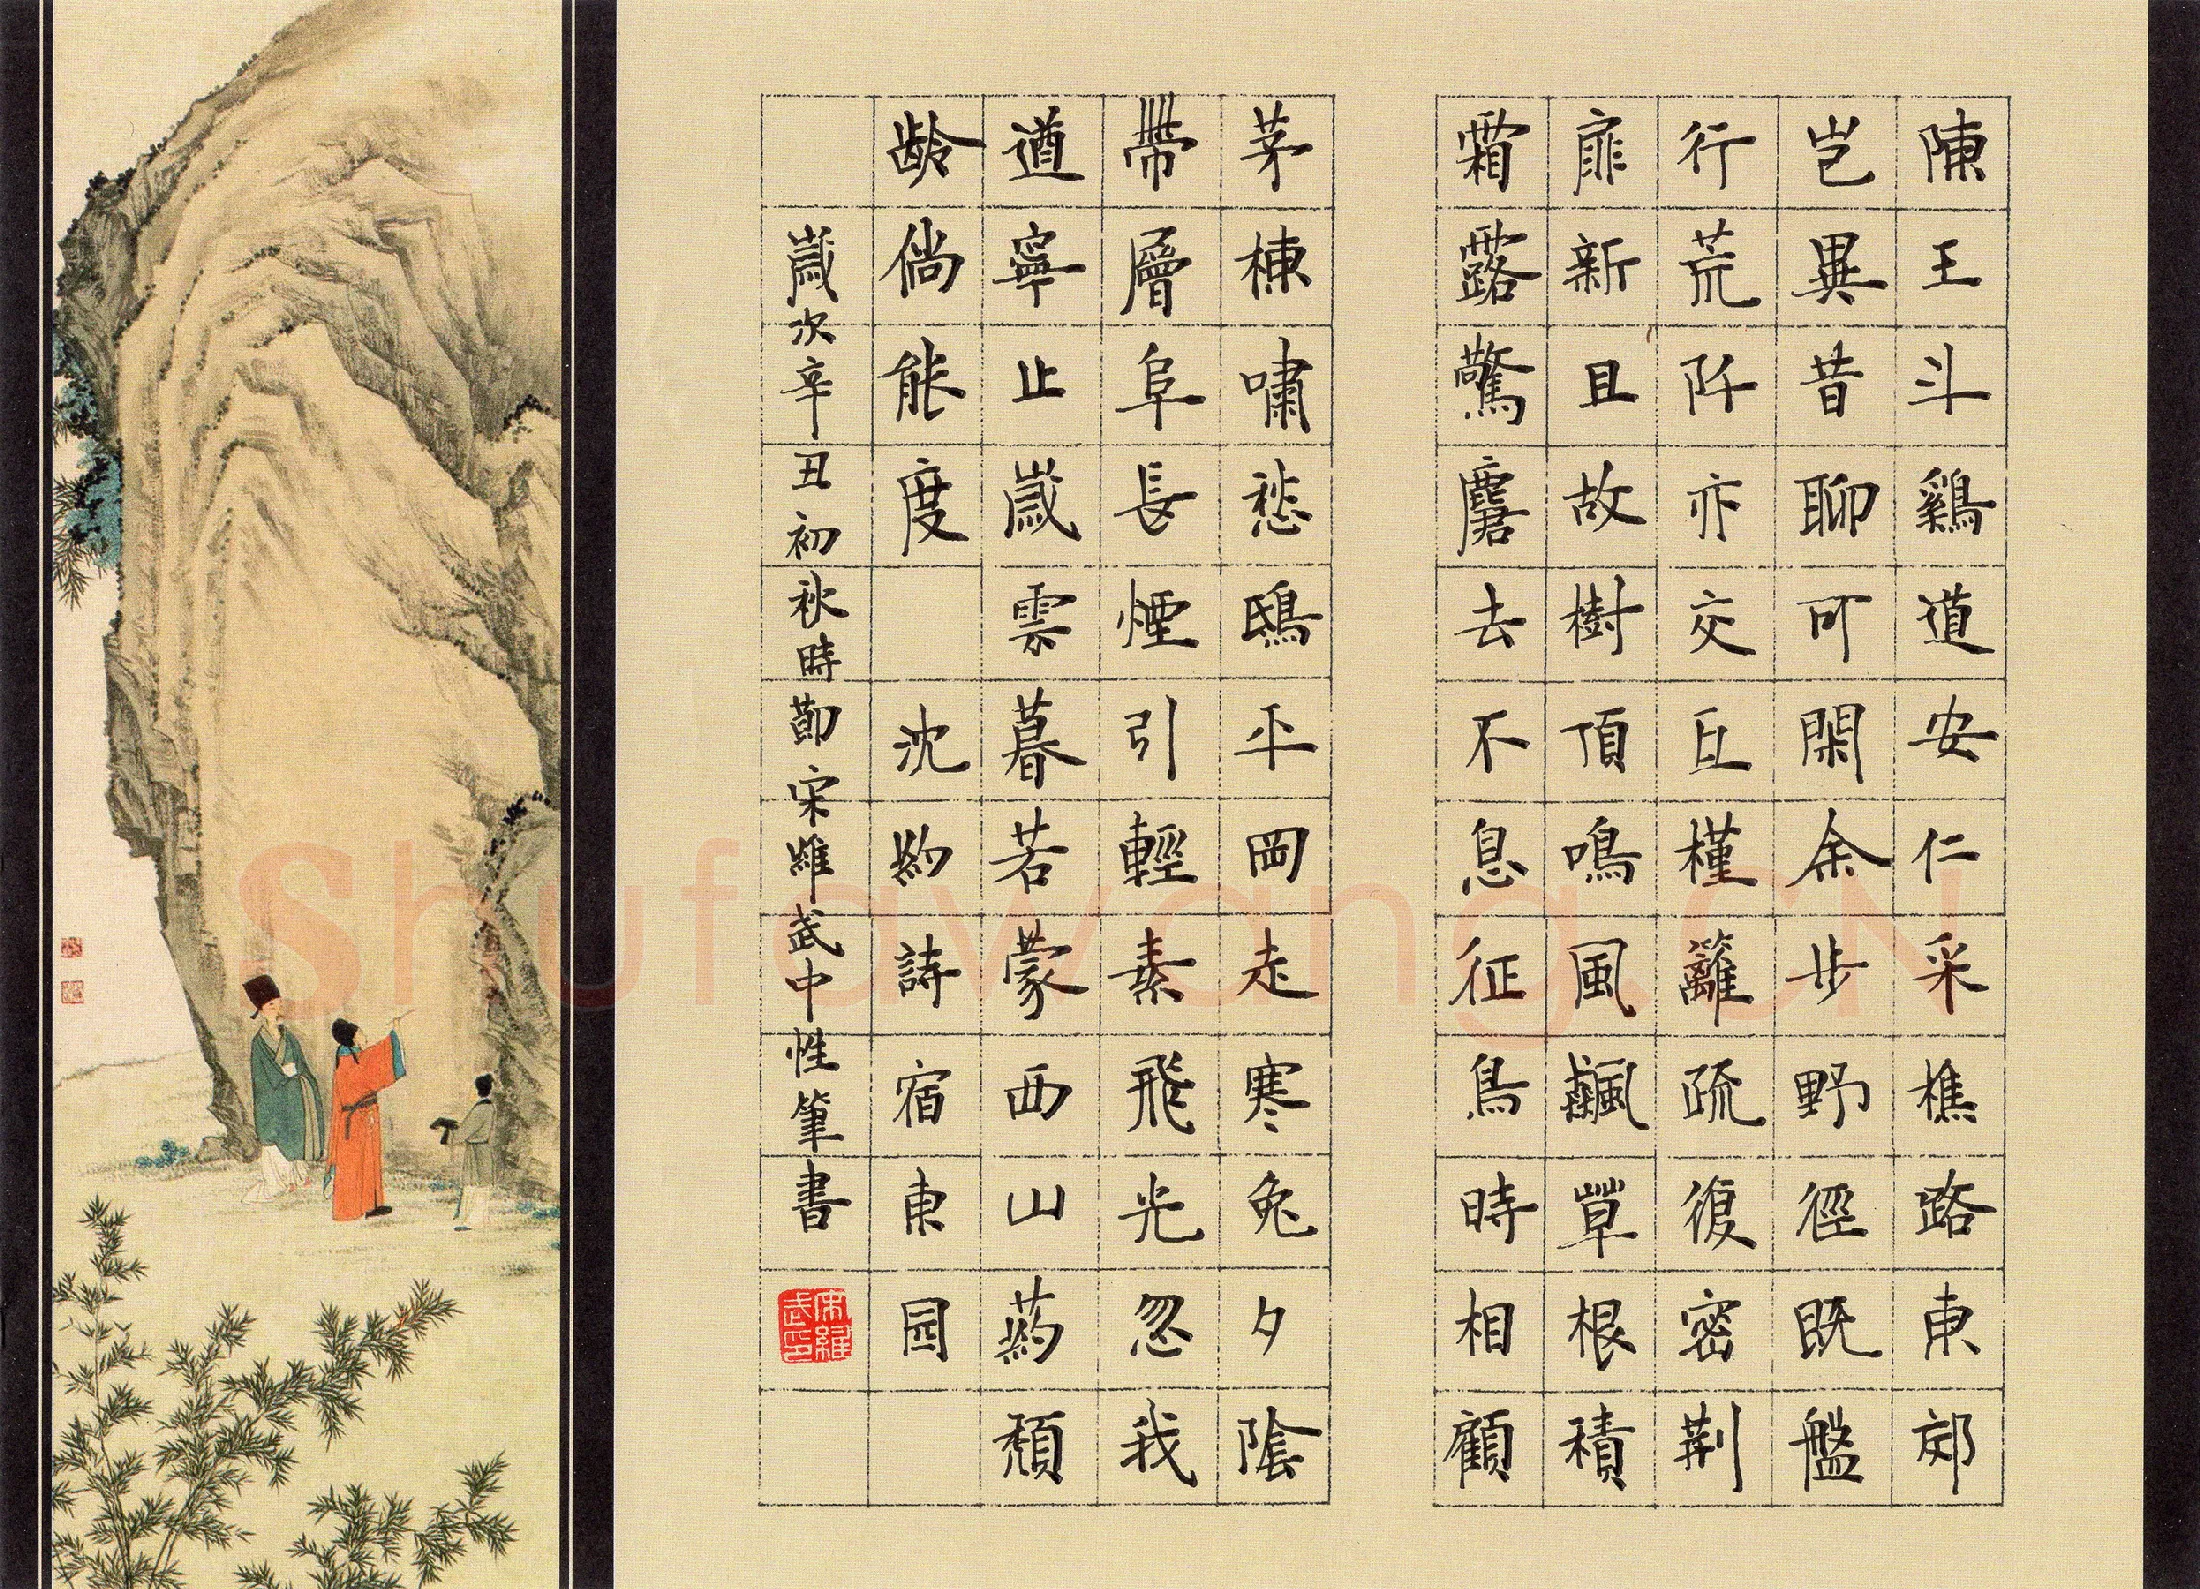 陳王斗鷄道安仁采樵路東郊
豈異昔聊可閑余步野徑既盤
行荒阡亦交互槿籬疏復密荆
扉新且故樹頂鳴風飆草根積
霜露驚麏去不息征鳥時相顧
茅棟嘯愁鴟平岡走寒兔夕陰
帶層阜長煙引輕素飛光忽我
遒寧止歲雲暮若蒙西山藥頹
齡倘能度 沈約詩宿東园
歲次辛丑初秋時節宋維武中性筆書
宋維武印
Shufawang.CN